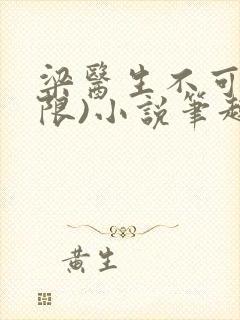 梁醫生不可
限)小說筆趣
黃生